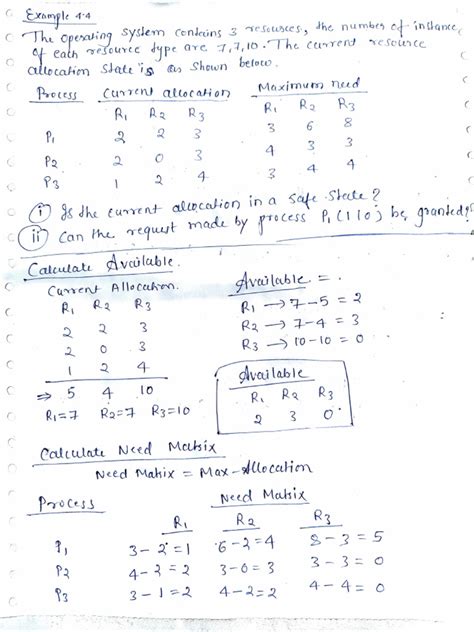 Example 4.4
The operating system contains 3 resources, the number of instance
of each resource type are 7, 7, 10. The current resource
allocation state is as shown below.
Process Current allocation Maximum need
R1 R2 R3 R1 R2 R3
P1 2 2 3 3 6 8
P2 2 0 3 4 3 3
P3 1 2 4 3 4 4
(i) Is the current allocation in a safe state?
(ii) Can the request made by process P1 (1 1 0) be granted?
Calculate Available.
Current Allocation.
R1 R2 R3
2 2 3
2 0 3
1 2 4
⇒ 5 4 10
R1=7 R2=7 R3=10
Available =.
R1 → 7-5 = 2
R2 → 7-4 = 3
R3 → 10-10 = 0
Available
R1 R2 R3
2 3 0
Calculate Need Matrix
Need Matrix = Max-Allocation
Process Need Matrix
R1 R2 R3
P1 3-2=1 6-2=4 8-3=5
P2 4-2=2 3-0=3 3-3=0
P3 3-1=2 4-2=2 4-4=0